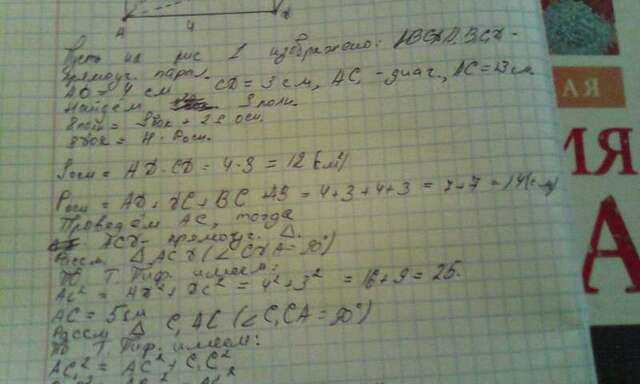 A 4 D
Пусть на рис 1 изображено: ABCDA₁B₁C₁D₁ -
прямоуг. парал.
AD = 4 см CD = 3 см, AC₁ - диаг., AC₁ = 13 см
Найдём Sполн.
Sполн = Sбок + 2Sосн.
Sбок = H · Pосн.
Sосн = AD · CD = 4 · 3 = 12 (см²)
Pосн = AD + DC + BC + AB = 4 + 3 + 4 + 3 = 7 + 7 = 14 (см)
Проведём AC, тогда
ACD - прямоуг. Δ.
Рассм. Δ ACD (∠CDA = 90°)
По Т. Пиф. имеем:
AC² = AD² + DC² = 4² + 3² = 16 + 9 = 25.
AC = 5 см
Рассм Δ C₁AC (∠C₁CA = 90°)
По Т. Пиф. имеем:
AC₁² = AC² + C₁C²
АЯ
ИЯ
А